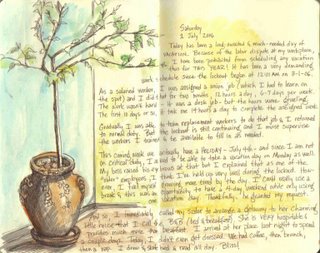 Saturday
2 July 2016
Today has been a long-awaited & much-needed day of
vacation. Because of the labor dispute at my workplace,
I have been prohibited from scheduling any vacation
this for THIS YEAR! It has been a very demanding
work schedule since the lockout began at 12:01 AM on
As a salaried worker, I was assigned a union job (which I had to learn on
the spot) and I did that for two months, 12 hours a day, 6-7 days per week.
The work wasn't hard. It was a desk job - but the hours were grueling.
The first 10 days or so, it took me 14 hours a day to complete the assigned work.
Gradually I was able to train replacement workers to do that job & I returned
to normal duty. But the lockout is still continuing and I must supervise
the workers I trained & be available to fill in as needed.
This coming week we actually have a HOLIDAY - July 4th - and since I am not
on critical duty, I asked to be able to take a vacation day on Monday as well.
My boss raised his eyebrows at that but I explained that as one of the
"older" employees, I think I've held up very well during the lockout. However,
I feel myself growing more tired by the day. I could really use a
break & this was an opportunity to have a 4-day weekend while only using
one vacation day. Thankfully, he granted my request.
And so, I immediately called my sister to arrange a getaway to her charming
little house that I call the B&B (bed & breakfast). She is VERY hospitable &
provides much more than breakfast. I arrived at her place last night to spend
a couple days. Today, I didn't even get dressed. We had coffee, then brunch,
then a nap. I drew & she had a read all day. Bliss!